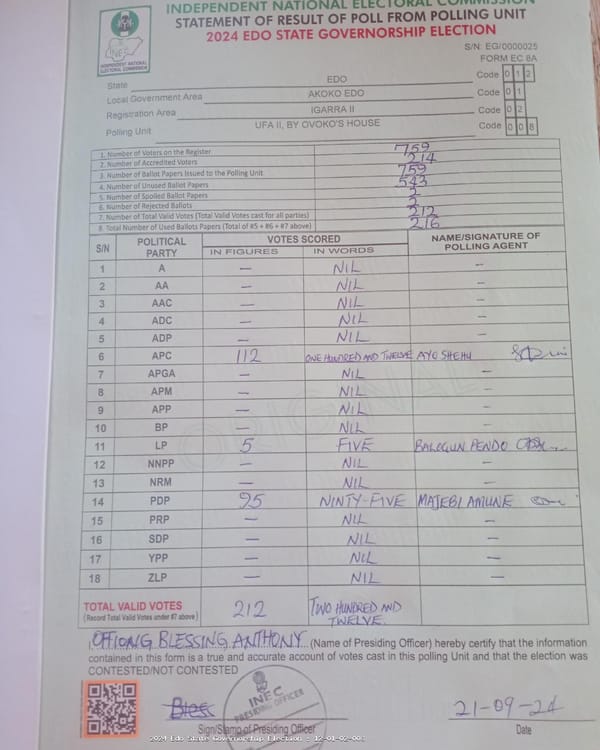 INDEPENDENT NATIONAL ELECTORAL COMMISSION
STATEMENT OF RESULT OF POLL FROM POLLING UNIT
2024 EDO STATE GOVERNORSHIP ELECTION
INEC
INDEPENDENT NATIONAL ELECTORAL COMMISSION
S/N: EG/0000025
FORM EC 8A
State EDO Code 0 1 2
Local Government Area AKOKO EDO Code 0 1
Registration Area IGARRA II Code 0 2
Polling Unit UFA II, BY OVOKO'S HOUSE Code 0 0 8
1. Number of Voters on the Register 759
2. Number of Accredited Voters 214
3. Number of Ballot Papers Issued to the Polling Unit 759
4. Number of Unused Ballot Papers 543
5. Number of Spoiled Ballot Papers 2
6. Number of Rejected Ballots 2
7. Number of Total Valid Votes (Total Valid Votes cast for all parties) 212
8. Total Number of Used Ballots Papers (Total of #5 + #6 + #7 above) 216
S/N POLITICAL PARTY VOTES SCORED NAME/SIGNATURE OF POLLING AGENT
IN FIGURES IN WORDS
1 A — NIL —
2 AA — NIL —
3 AAC — NIL —
4 ADC — NIL —
5 ADP — NIL —
6 APC 112 ONE HUNDRED AND TWELVE AYO SHEHU
7 APGA — NIL —
8 APM — NIL —
9 APP — NIL —
10 BP — NIL —
11 LP 5 FIVE BALOGUN PENDO
12 NNPP — NIL —
13 NRM — NIL —
14 PDP 95 NINTY-FIVE MAJEBI AMUNE
15 PRP — NIL —
16 SDP — NIL —
17 YPP — NIL —
18 ZLP — NIL —
TOTAL VALID VOTES 212 TWO HUNDRED AND
(Record Total Valid Votes under #7 above) TWELVE
ORIGINAL
I, OFFIONG BLESSING ANTHONY (Name of Presiding Officer) hereby certify that the information
contained in this form is a true and accurate account of votes cast in this polling Unit and that the election was
CONTESTED/NOT CONTESTED
Bless INEC PRESIDING OFFICER 21-09-24
Sign/Stamp of Presiding Officer Date
2024 Edo State Governorship Election - 12-01-02-008